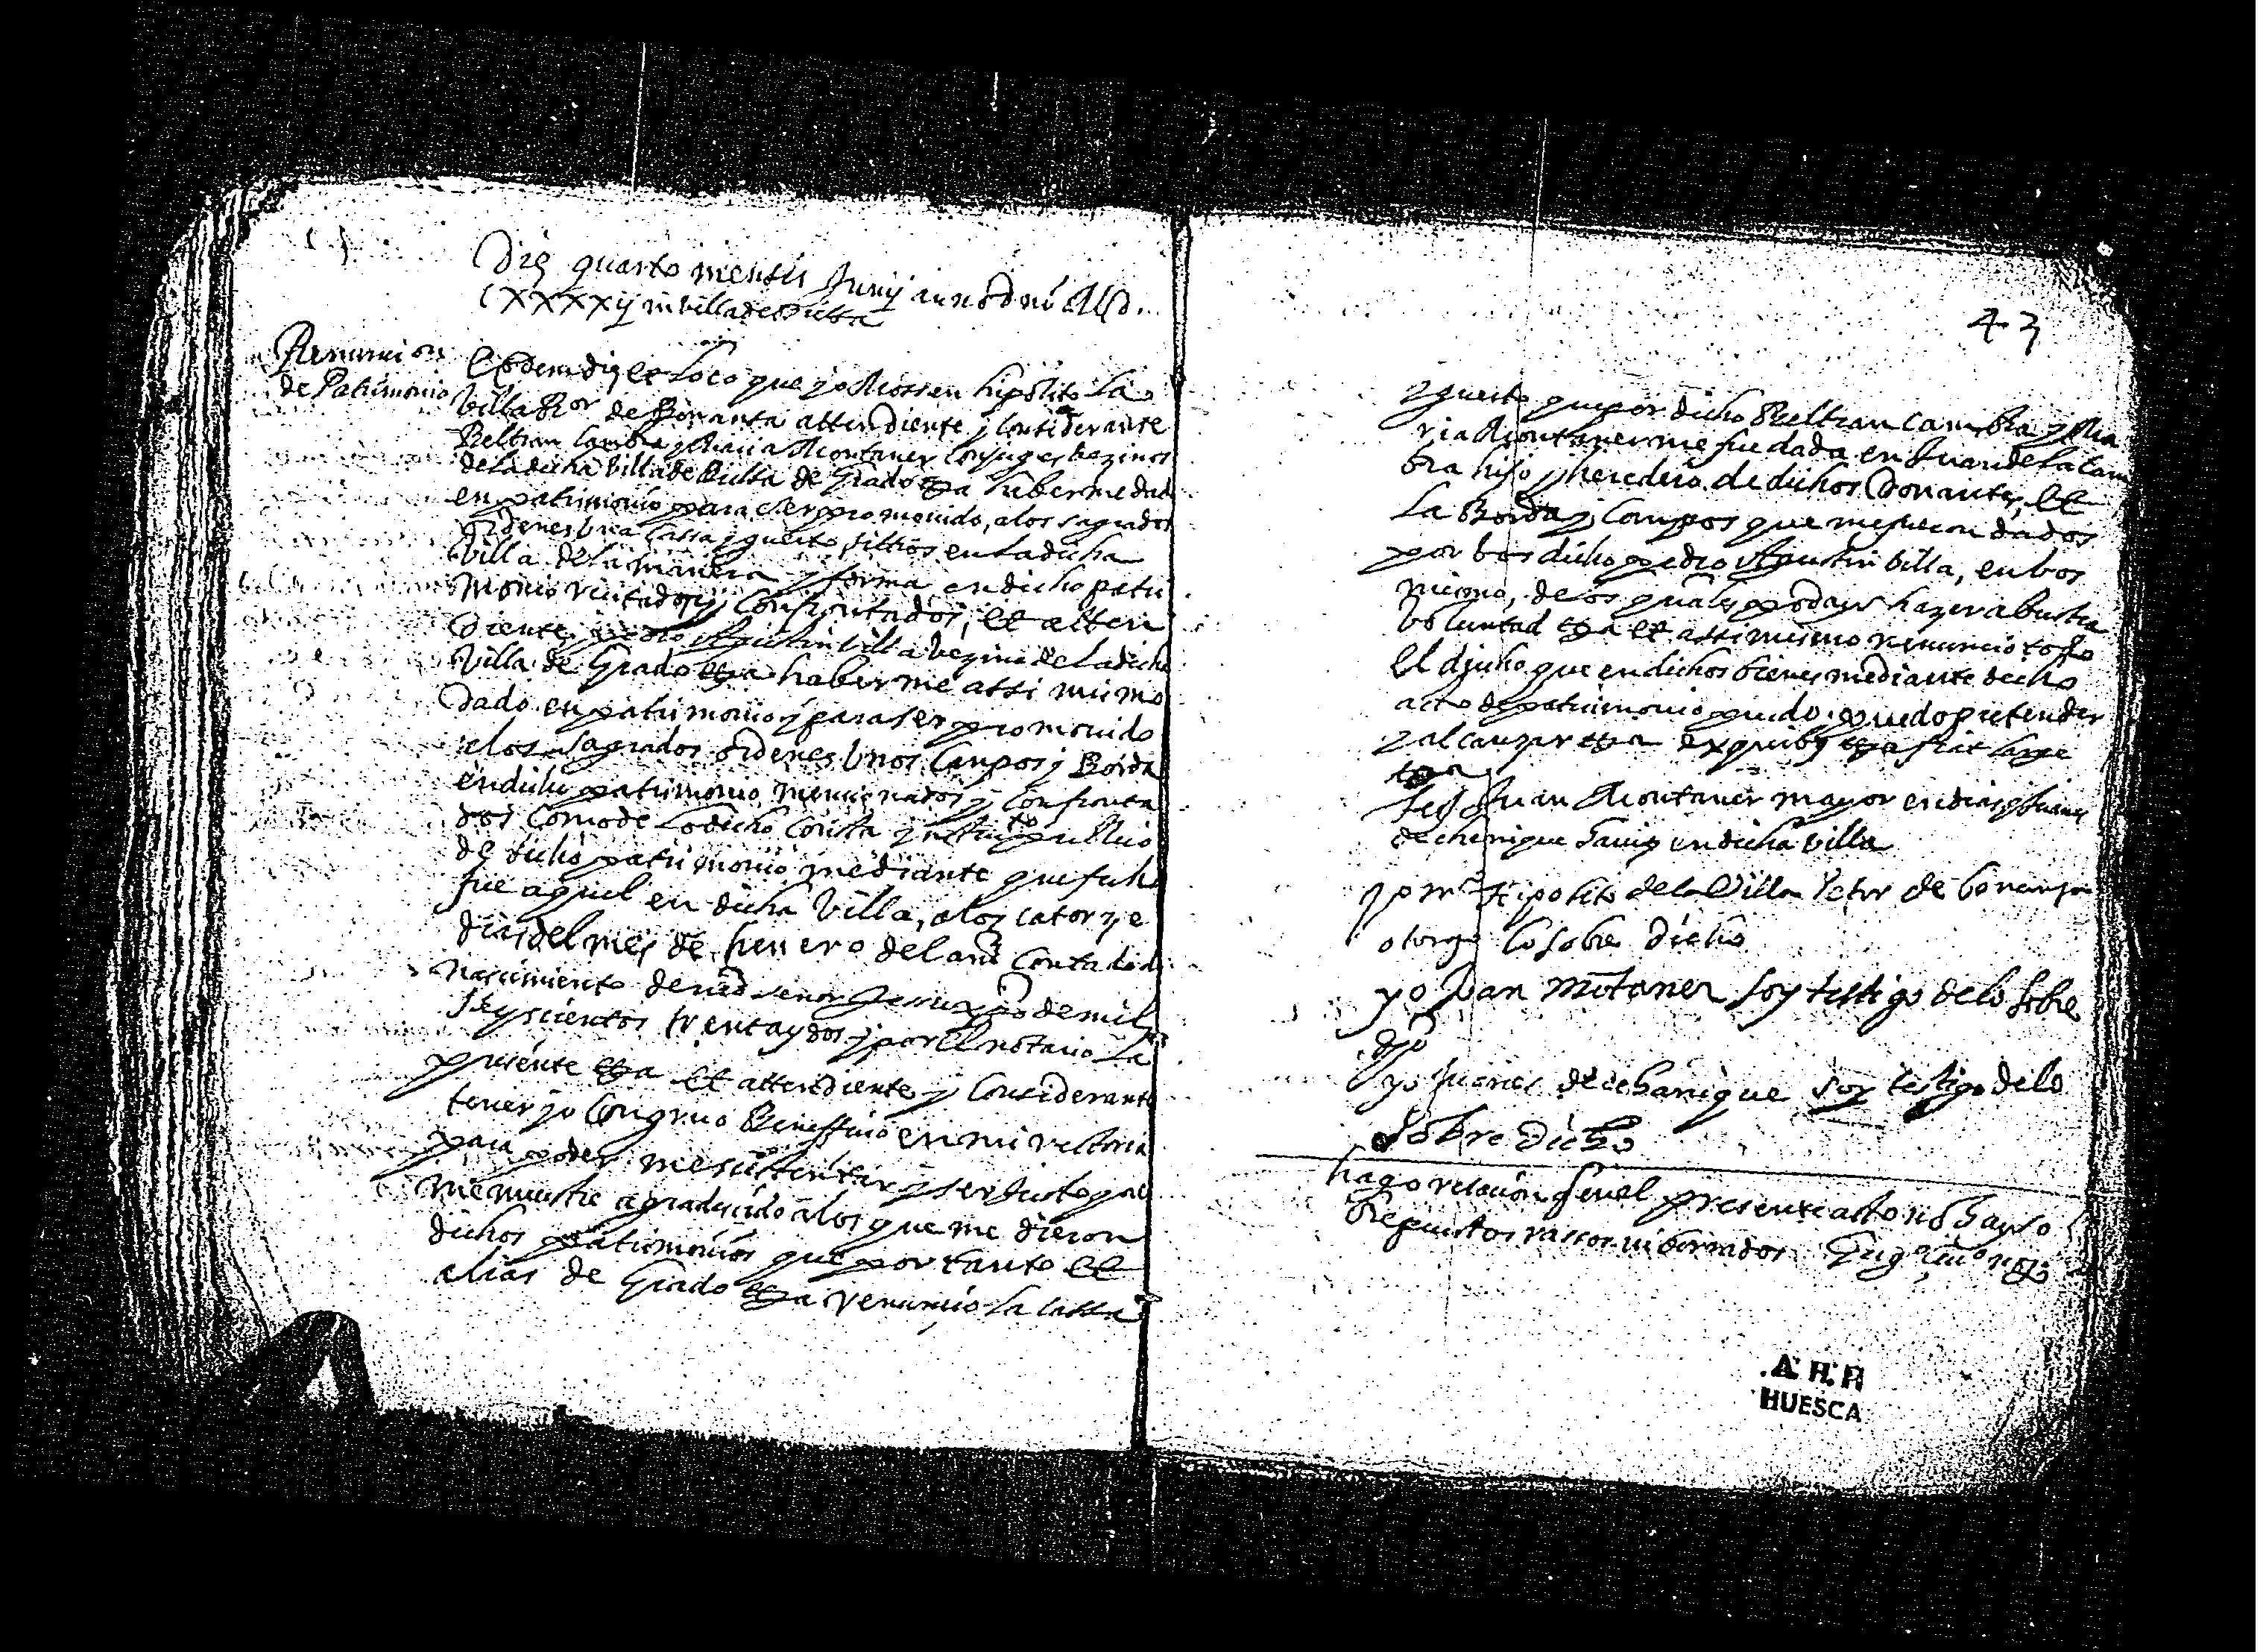 Die quarto mensis Junij anno dni MD
CXXXXij in villa de Bielsa
Renuncion
de Patrimonio
Eodem die et loco que yo Mossen hipolito la
Villa Ror de Bonanta attendiente y considerante
Beltran Cambra y Maria Montaner Conjuges bezinos
de la dicha villa de Bielsa de Grado etta haberme dado
en patrimonio para ser promouido, a los sagrados
ordenes una cassa y guerto sittios en la dicha
villa de la manera y forma en dicho patri
monio recitados y confrontados, et atten
diente pedro Agustin villa bezino de la dicha
villa de Grado etta haberme assi mismo
dado en patrimonio y para ser promouido
a los sagrados ordenes unos Campos y Borda
en dicho patrimonio mencionados y confronta
dos como de lo dicho consta ynstruto publico
de dicho patrimonio mediante que fecho
fue aquel en dicha villa, a los catorze
dias del mes de henero del año contado del
nacimiento de nro senor Jesuxpo de mil
seyscientos trentaydos y por el notario la
presente etta et attendiente y considerante
tener yo congruo Beneffiçio en mi rectoria
para poder me sustentar y ser justo que
me muestre agradeçido a los que me dieron
dichos patrimonios que por tanto et
alias de Grado etta renunçio la cassa
43
y guerto que por dicho Beltran Cambra y Ma
ria Montaner me fue dada en Juan de la Cam
bra hijo y heredero de dichos Donantes, et
la Borda y Campos que me fueron dados
por bos dicho pedro Agustin villa, en bos
mismo, de los quales podays hazer a buestra
boluntad etta et assi mismo renuncio todo
el djucho que en dichos bienes mediante dicho
acto de patrimonio pudo, puedo pretender
y alcanzar etta ex quibus etta fiat large
etta
Tes Juan Montaner mayor en dias y Juanes
de chenique haui en dicha villa
yo mn Hipolito de la Villa Retor de bonanza
otorgo lo sobre dicho
yo Juan mōtaner soy testigo de lo sobre
dho
yo Juanes de echanique soy testigo de lo
sobre dicho
hago relacion q en el presente acto no hay so
brepuestos rassos ni borrados
A. H. P.
HUESCA